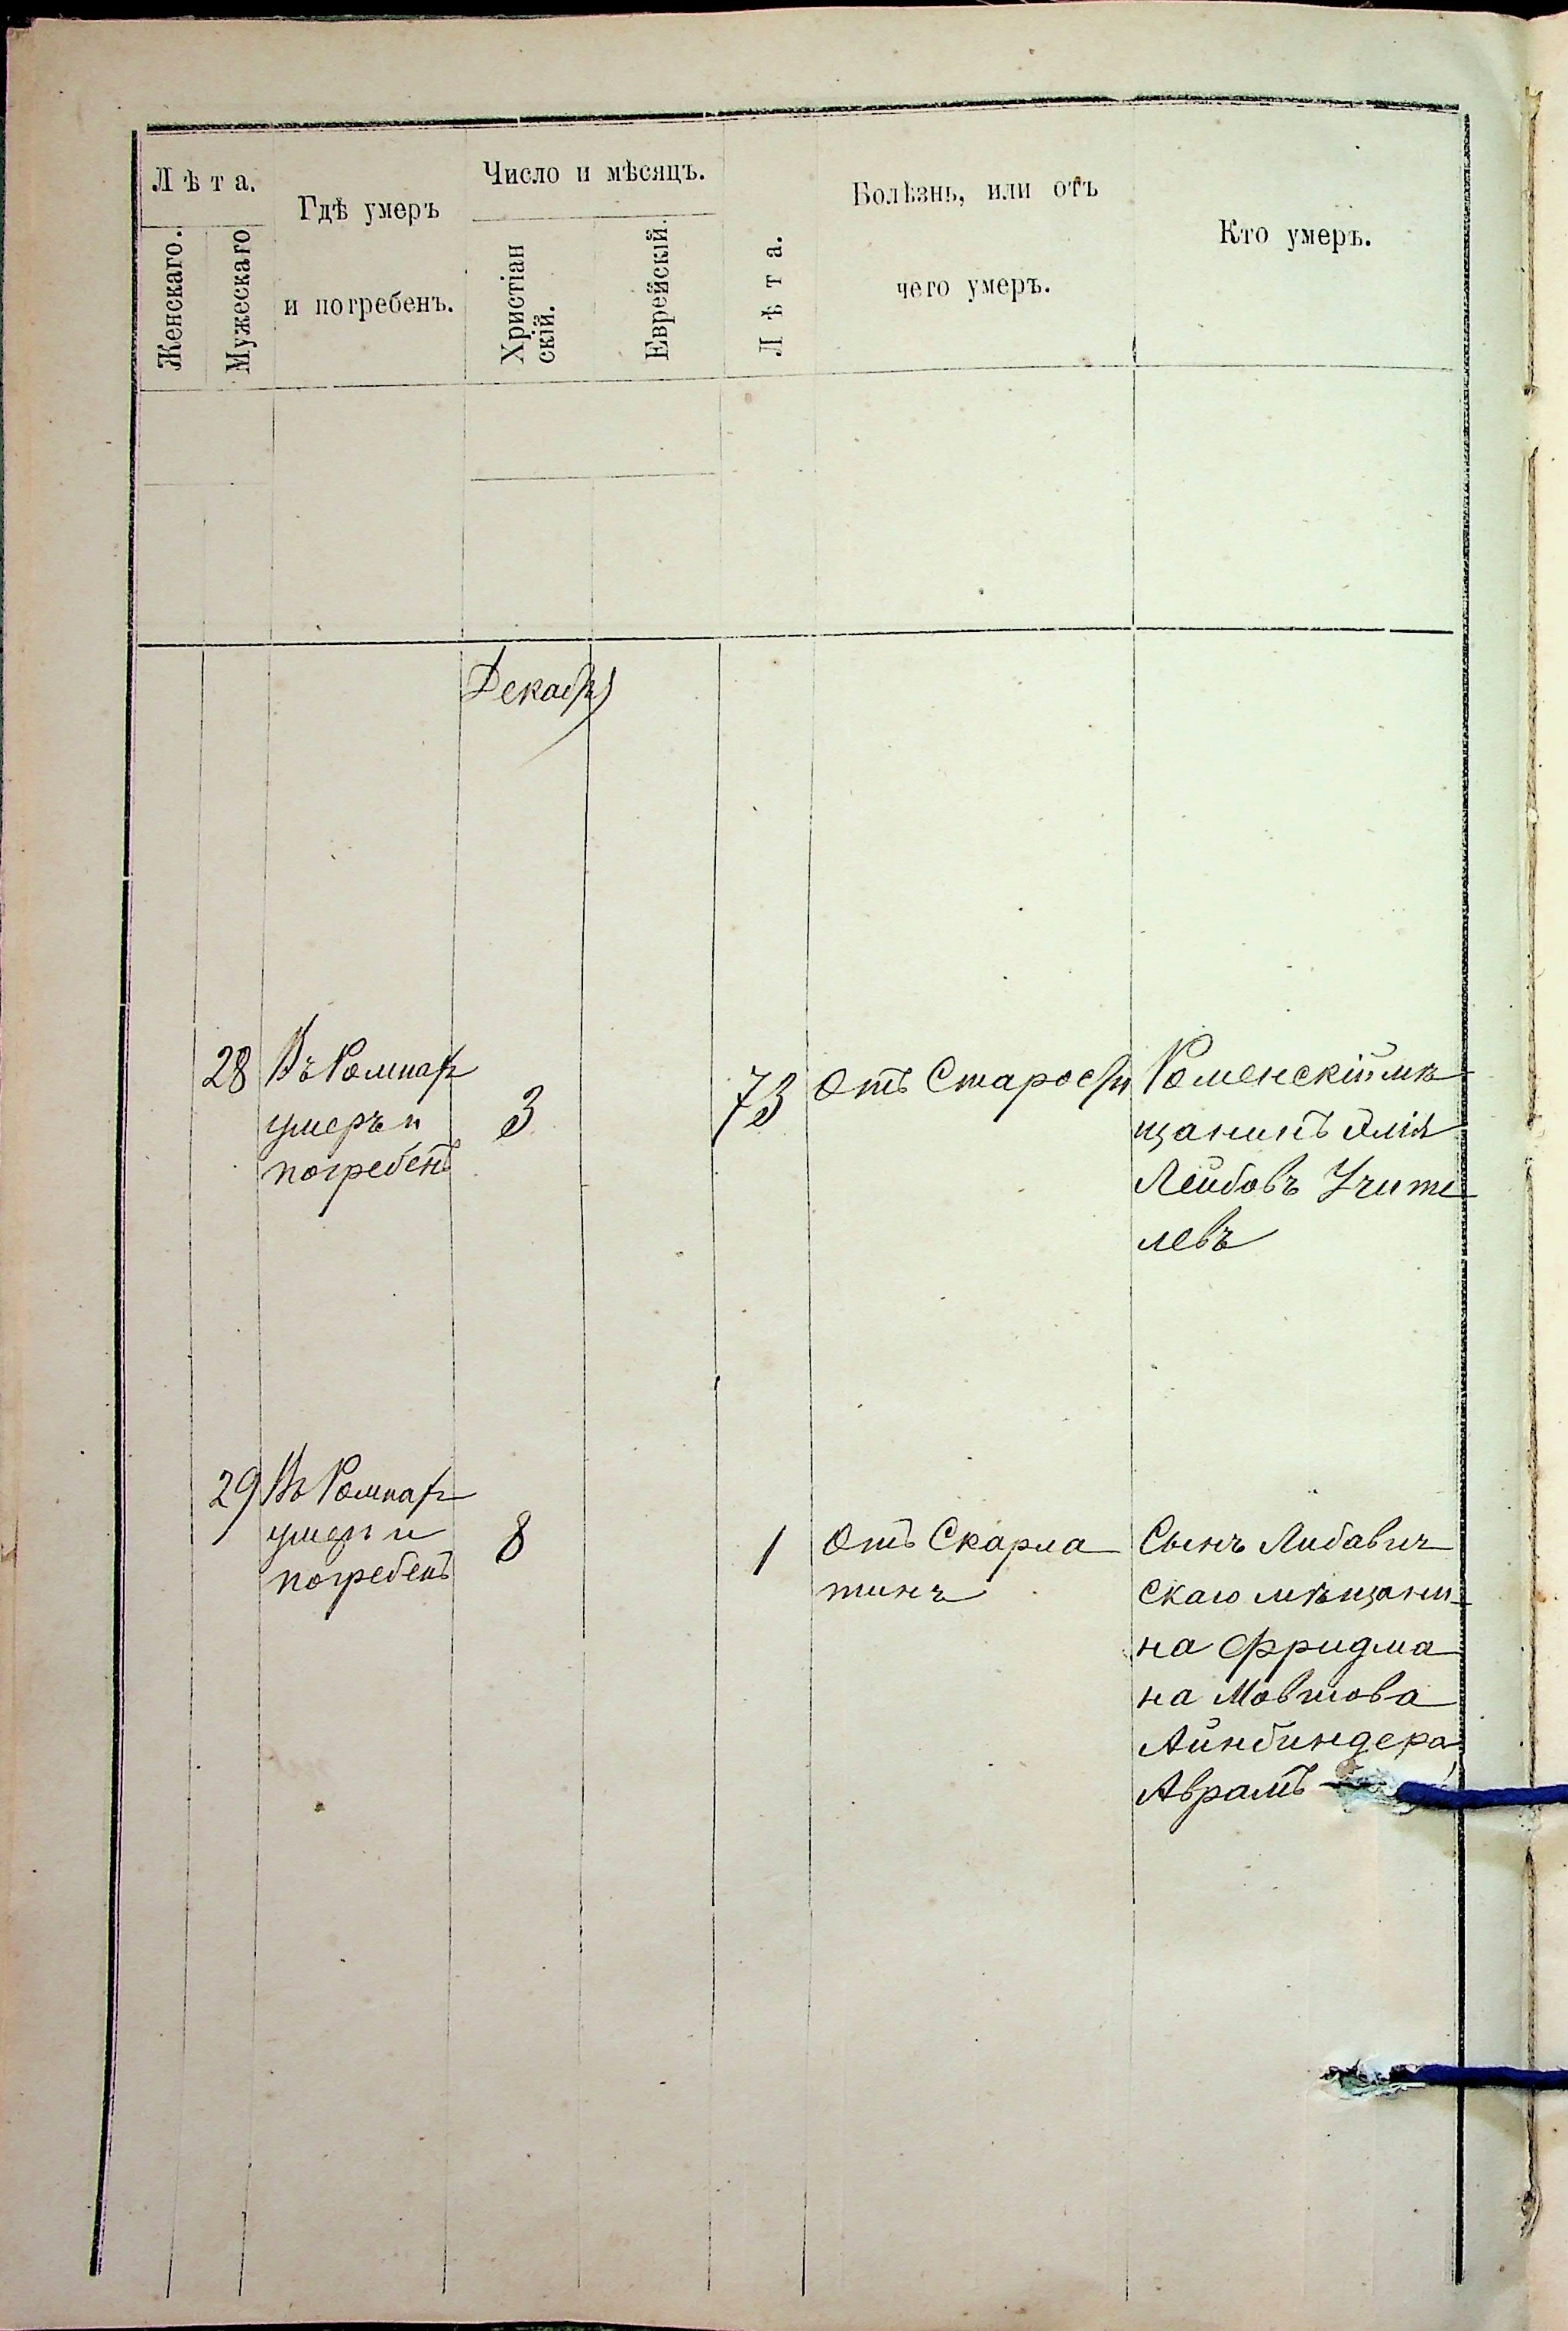 Лѣта.
Женскаго.
Мужескаго
Гдѣ умеръ
и погребенъ.
Число и мѣсяцъ.
Христіан
скій.
Еврейскій.
Лѣта.
Болѣзнь, или отъ
чего умеръ.
Кто умеръ.
Декабрь
28
Въ Ромнахъ
умеръ и
погребенъ
3
73
Отъ Старости
Роменскій мѣ
щанинъ Элія
Лейбовъ Учите
левъ
29
Въ Ромнахъ
умеръ и
погребенъ
8
1
Отъ Скарла
тинъ
Сынъ Либавич
скаго мѣщани-
на Фридма
на Мовшова
Айнбиндера
Аврамъ